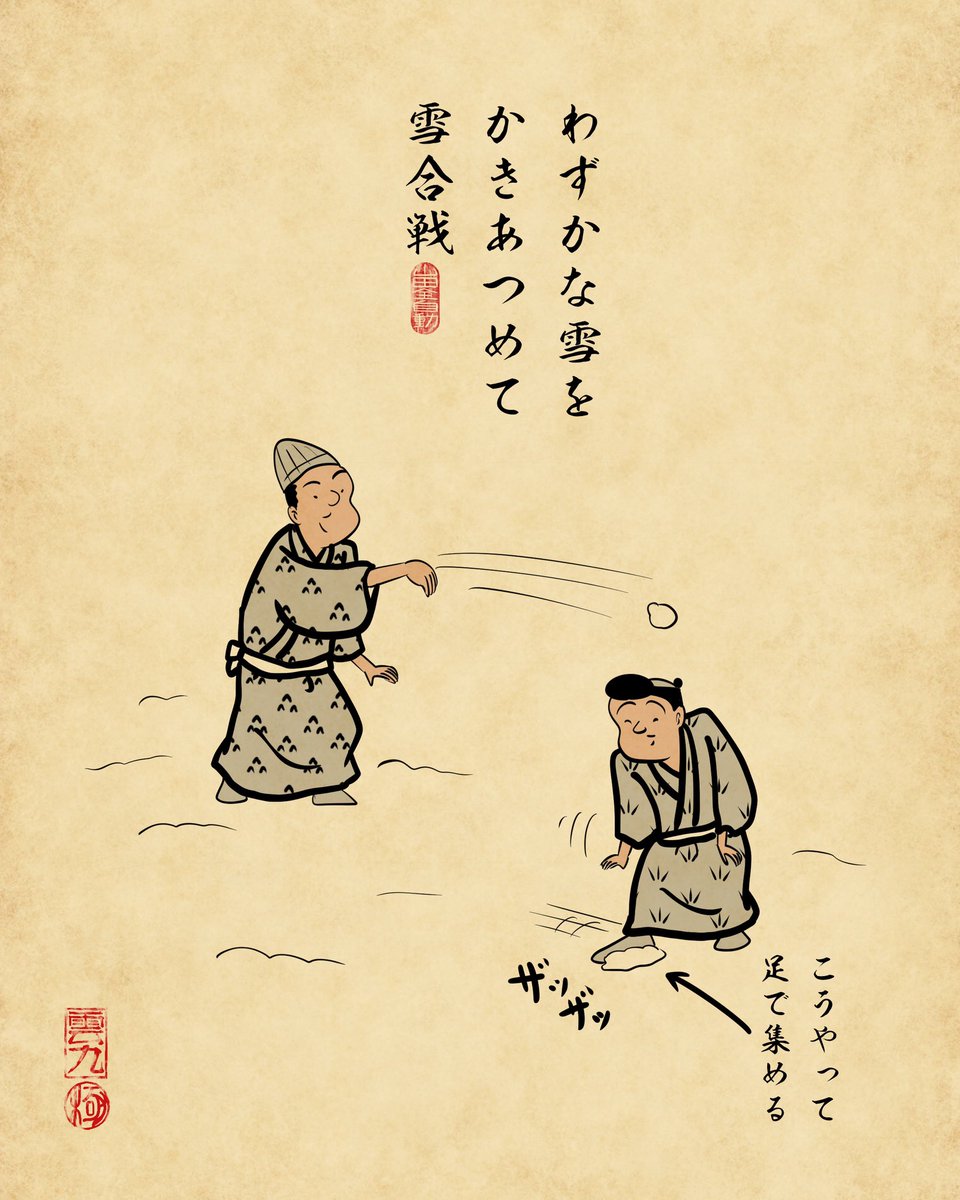 わずかな雪を
かきあつめて
雪合戦
こうやって
足で集める
ザッ
ザッ